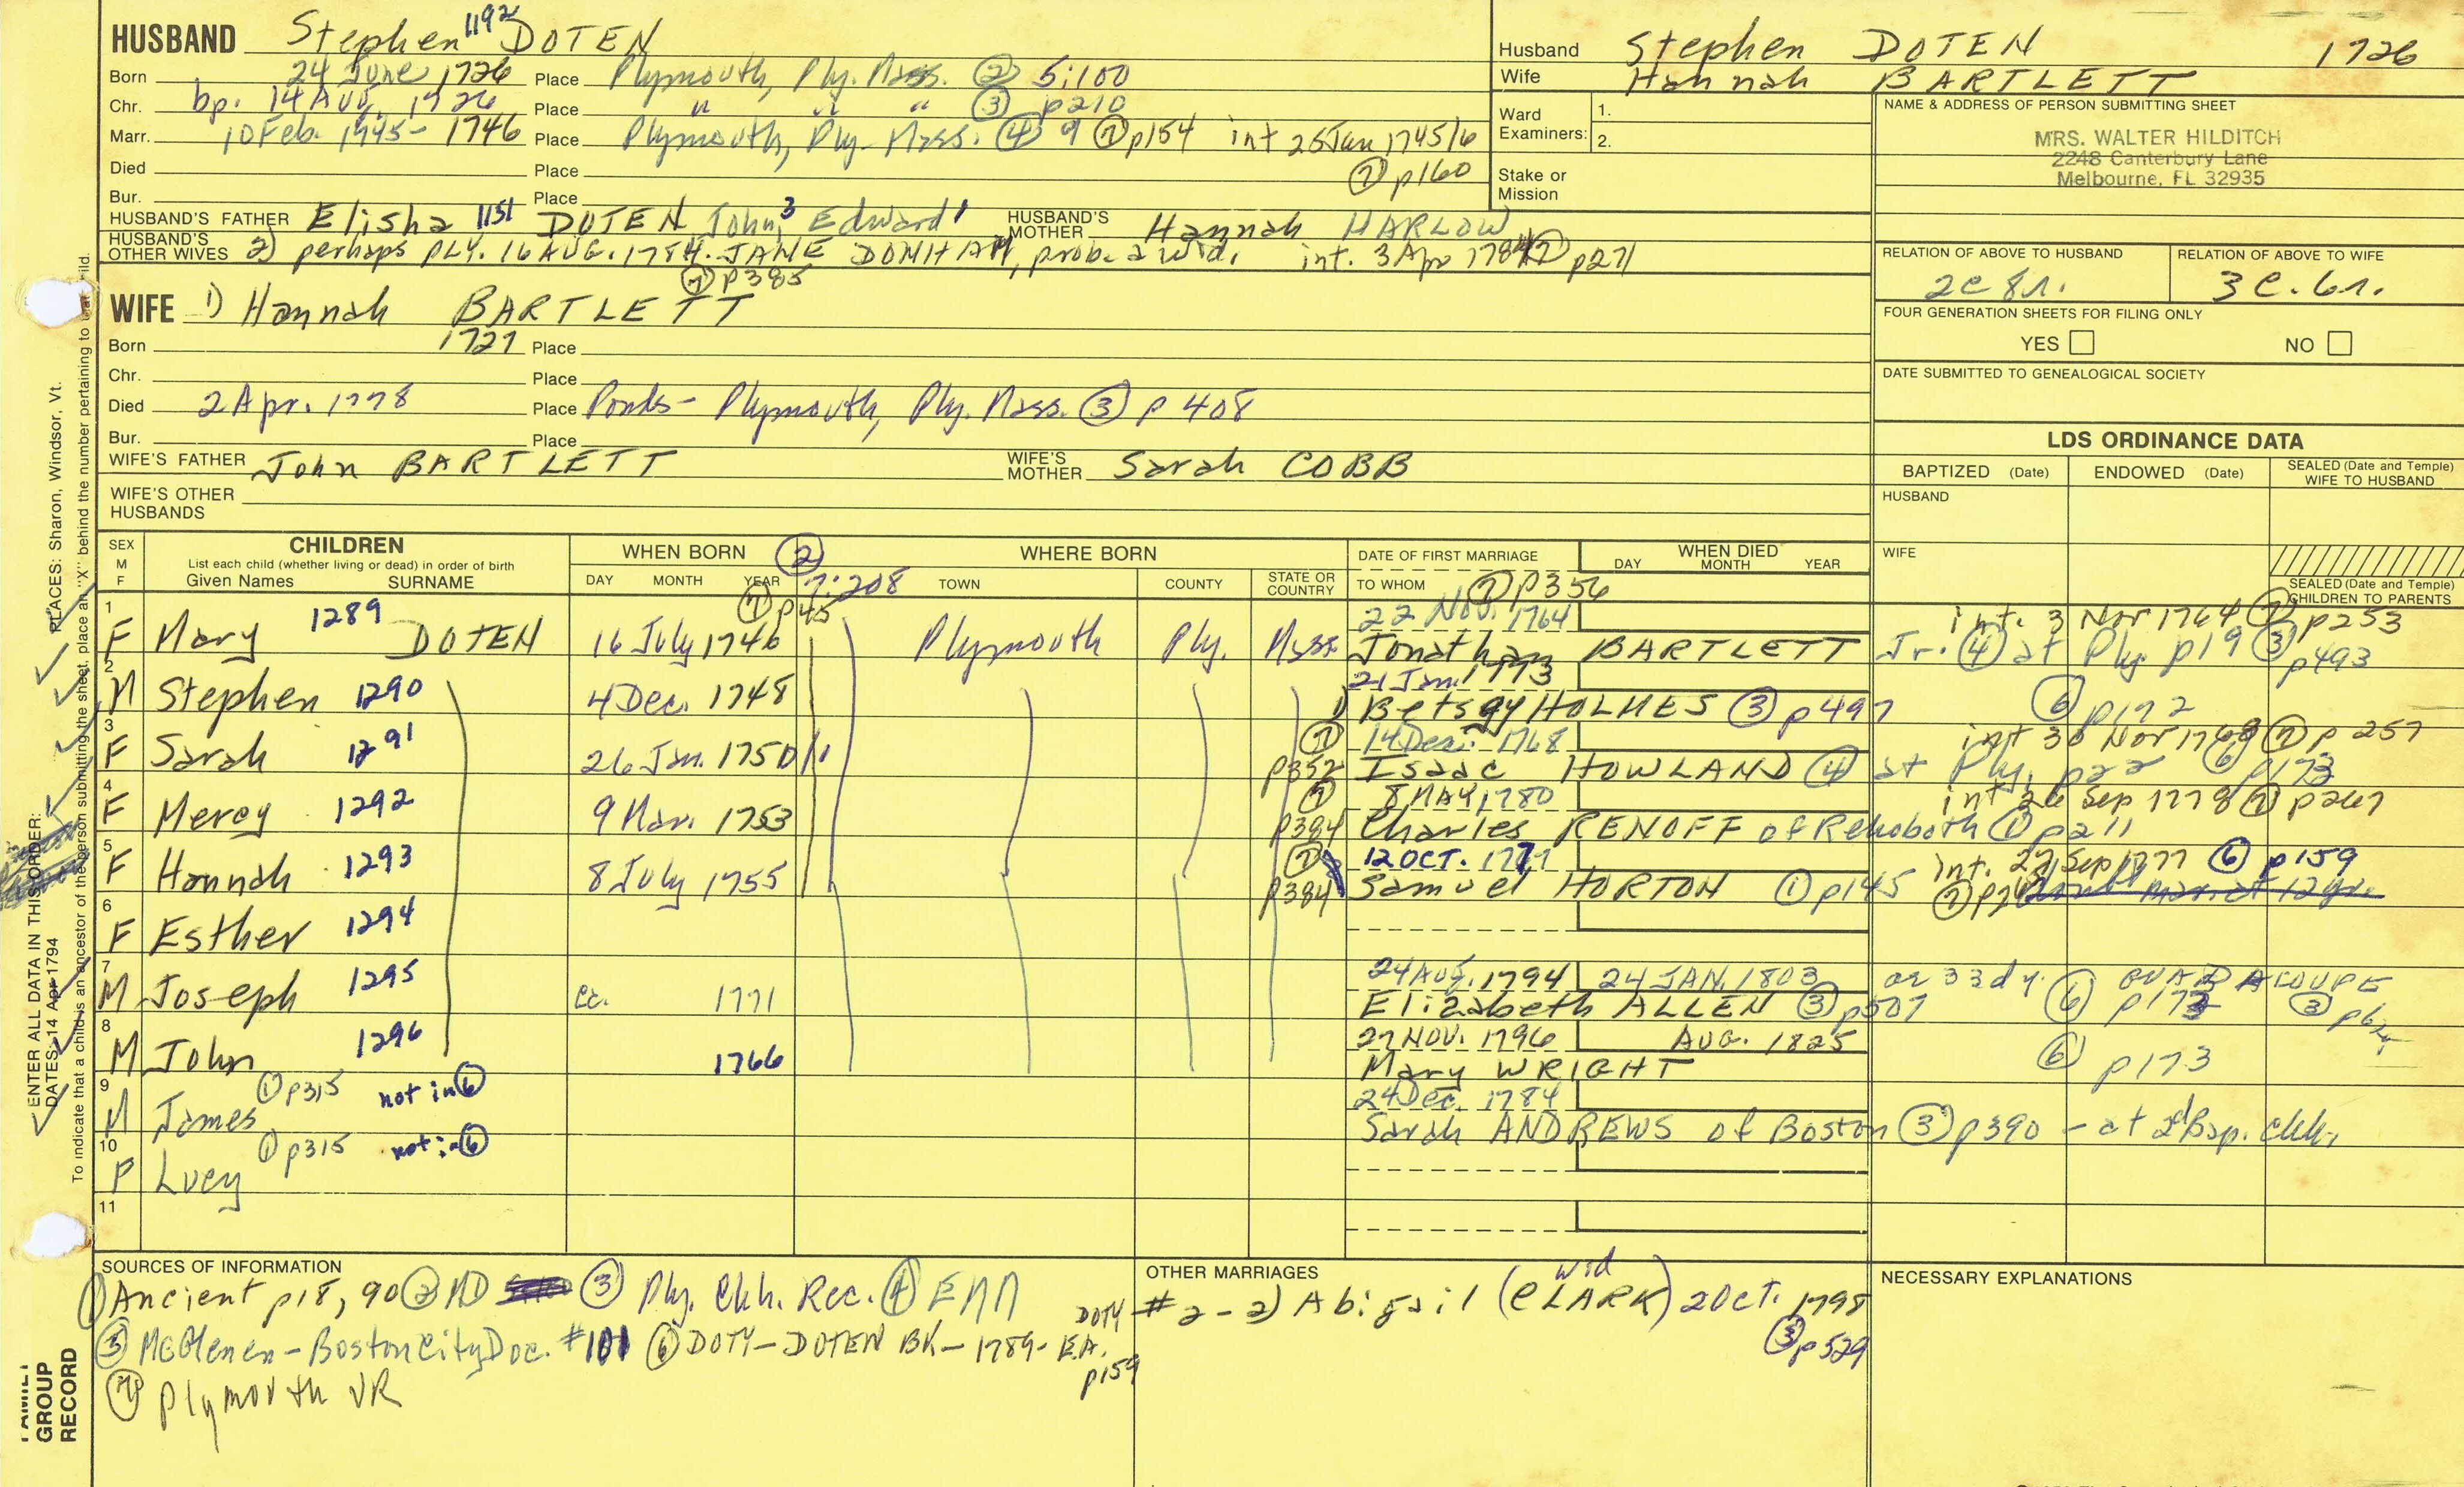 HUSBAND Stephen 1192 DOTEN
Born 24 June 1726 Place Plymouth, Ply. Mass. ② 5:100
Chr. bp. 14 AUG. 1726 Place " " " ③ p210
Marr. 10 Feb. 1745-1746 Place Plymouth, Ply. Mass. ④ 9 ⑦ p154 int 25 Jan 1745/6
Died Place ⑦ p160
Bur. Place
HUSBAND'S FATHER Elisha 1151 DOTEN John,³ Edward¹ HUSBAND'S MOTHER Hannah HARLOW
HUSBAND'S OTHER WIVES 2) perhaps PLY. 16 AUG. 1784. JANE DONHAM, prob. a wid. int. 3 Apr 1784 ⑦ p271
⑦ p385
WIFE 1) Hannah BARTLETT
Born 1727 Place
Chr. Place
Died 2 Apr. 1778 Place Ponds - Plymouth, Ply. Mass. ③ p 408
Bur. Place
WIFE'S FATHER John BARTLETT WIFE'S MOTHER Sarah COBB
WIFE'S OTHER HUSBANDS
Husband Stephen DOTEN 1726
Wife Hannah BARTLETT
Ward Examiners: 1.
2.
Stake or Mission
NAME & ADDRESS OF PERSON SUBMITTING SHEET
MRS. WALTER HILDITCH
2248 Canterbury Lane
Melbourne, FL 32935
RELATION OF ABOVE TO HUSBAND RELATION OF ABOVE TO WIFE
2c 8r. 3c. 6r.
FOUR GENERATION SHEETS FOR FILING ONLY
YES NO
DATE SUBMITTED TO GENEALOGICAL SOCIETY
LDS ORDINANCE DATA
BAPTIZED (Date) ENDOWED (Date) SEALED (Date and Temple) WIFE TO HUSBAND
HUSBAND
WIFE
SEALED (Date and Temple) CHILDREN TO PARENTS
SEX M F CHILDREN WHEN BORN ② WHERE BORN DATE OF FIRST MARRIAGE WHEN DIED
List each child (whether living or dead) in order of birth
Given Names SURNAME DAY MONTH YEAR 7:208 TOWN COUNTY STATE OR COUNTRY TO WHOM DAY MONTH YEAR
⑦ p45 ⑦ p356
22 Nov. 1764 int. 3 Nov 1764 ⑦ p253
1 F Mary 1289 DOTEN 16 July 1746 Plymouth Ply. Mass. Jonathan BARTLETT Jr. ④ at Ply p19 ③ p493
21 Jan. 1773
2 M Stephen 1290 4 Dec. 1748 1) Betsey HOLMES ③ p497 ⑥ p172
⑦ 14 Dec. 1768 int 30 Nov 1768 ⑦ p 257
3 F Sarah 1291 26 Jan. 1750/1 p352 Isaac HOWLAND ④ at Ply, p22 ⑥ p173
⑦ 8 MAY, 1780 int 26 Sep 1778 ⑦ p267
4 F Mercy 1292 9 Mar. 1753 p384 Charles RENOFF of Rehoboth ① p211
⑦ 12 OCT. 1777 Int. 27 Sep 1777 ⑥ p159
5 F Hannah 1293 8 July 1755 p384 Samuel HORTON ① p145
6 F Esther 1294
24 AUG. 1794 24 JAN. 1803 or 33 dy. GUADALOUPE
7 M Joseph 1295 cc. 1771 Elizabeth ALLEN ③ p507 ⑥ p173
27 NOV. 1796 AUG. 1825
8 M John 1296 1766 Mary WRIGHT ⑥ p173
① p315 not in ⑥ 24 Dec. 1784
9 M James Sarah ANDREWS of Boston ③ p390 - at 2d Bap. chh.
① p315 not in ⑥
10 F Lucy
11
SOURCES OF INFORMATION
① Ancient p18, 90 ② MD ③ Ply. Chh. Rec. ④ EMM
⑤ McGlenen - Boston City Doc. #101 ⑥ DOTY-DOTEN BK - 1789- E.A. DOTY p159
⑦ Plymouth VR
OTHER MARRIAGES
#2-2) Abigail (CLARK) wid 2 Oct. 1798
③ p529
NECESSARY EXPLANATIONS
ENTER ALL DATA IN THIS ORDER:
DATES: 14 Apr 1794 PLACES: Sharon, Windsor, Vt.
To indicate that a child is an ancestor of the person submitting the sheet, place an "X" behind the number pertaining to that child.
FAMILY GROUP RECORD